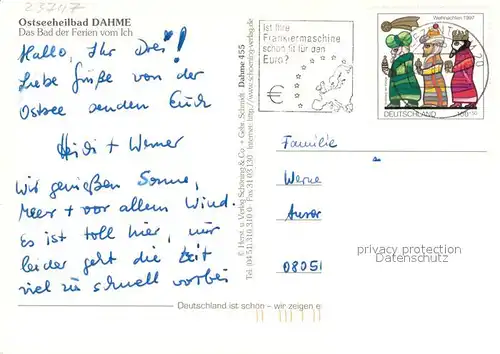 23747
Ostseeheilbad DAHME
Das Bad der Ferien vom Ich
Hallo, Ihr Drei!
Liebe Grüße von der
Ostsee senden Euch
Heidi + Werner
Wir genießen Sonne,
Meer + vor allem Wind.
Es ist toll hier, nur
leider geht die Zeit
viel zu schnell vorbei
Deutschland ist schön – wir zeigen e
© Horst u. Verlag Schöning & Co. + Gebr. Schmidt
Tel. (04 51) 310 310 Fax 31 03 130 Internet: http://www.schoening-verlag.de
Dahme 455
Ist Ihre
Frankiermaschine
schon fit für den
Euro?
€
Weihnachten 1997
DEUTSCHLAND
Familie
Werne
08051
privacy protection
Datenschutz